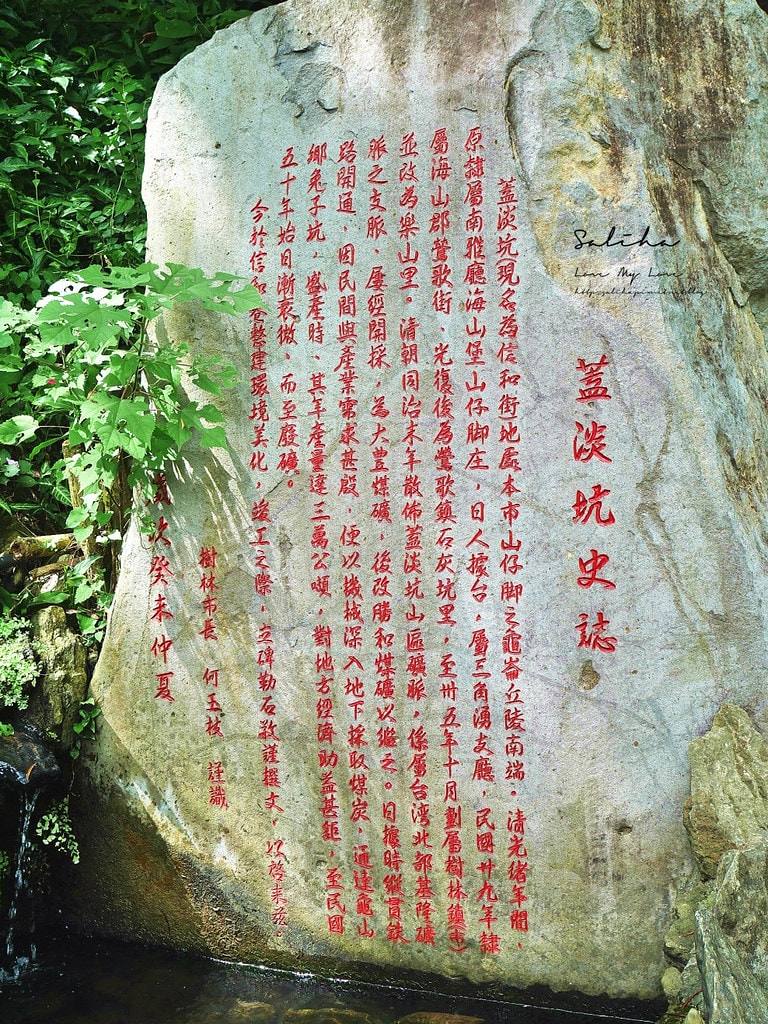 蓋淡坑史誌
蓋淡坑(現名為信和街)地處本市山仔腳之龜崙丘陵南端。清光緒年間,
原隸屬南雅廳海山堡山仔腳庄,日人據台,屬三角湧支廳,民國廿九年隸
屬海山郡鶯歌街、光復後為鶯歌鎮石灰坑里,至卅五年十月劃屬樹林鎮(市)
並改為樂山里。清朝同治末年散佈蓋淡坑山區礦脈,係屬台灣北部基隆礦
脈之支脈、屢經開採,為大豊煤礦,後改勝和煤礦以繼之。日據時縱貫鐵
路開通,因民間與產業需求甚殷,便以機械深入地下採取煤炭,通達龜山
鄉兔子坑,盛產時、其年產量達三萬公噸,對地方經濟助益甚鉅,至民國
五十年始日漸衰微、而至廢礦。
今於信和 整建環境美化,竣工之際,立碑勒石敬謹撰文, 以啓來茲。
樹林市長 何玉枝 謹識
歲次癸未仲夏
Saliha
Love My Love